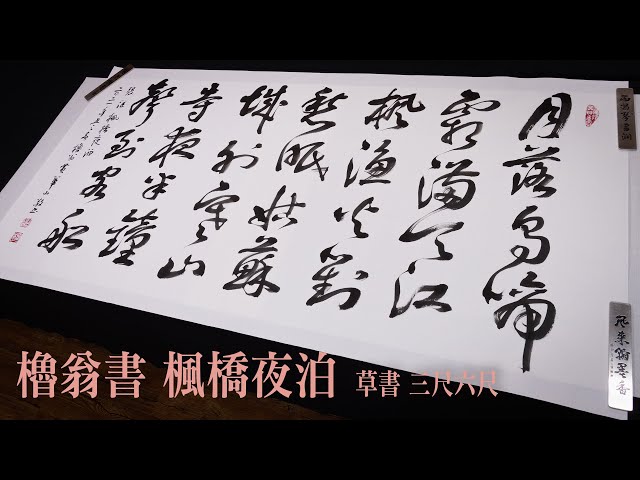 月落烏啼
霜滿天江
楓漁火對
愁眠姑蘇
城外寒山
寺夜半鐘
聲到客船
張繼楓橋夜泊
翰墨香
櫓翁書 楓橋夜泊 草書 三尺六尺